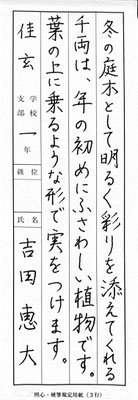 冬の庭木として明るく彩りを添えてくれる
千両は、年の初めにふさわしい植物です。
葉の上に乗るような形で実をつけます。
佳玄
学校
支部
一年
級位
氏名
吉田恵大
照心・硬筆規定用紙(3行)